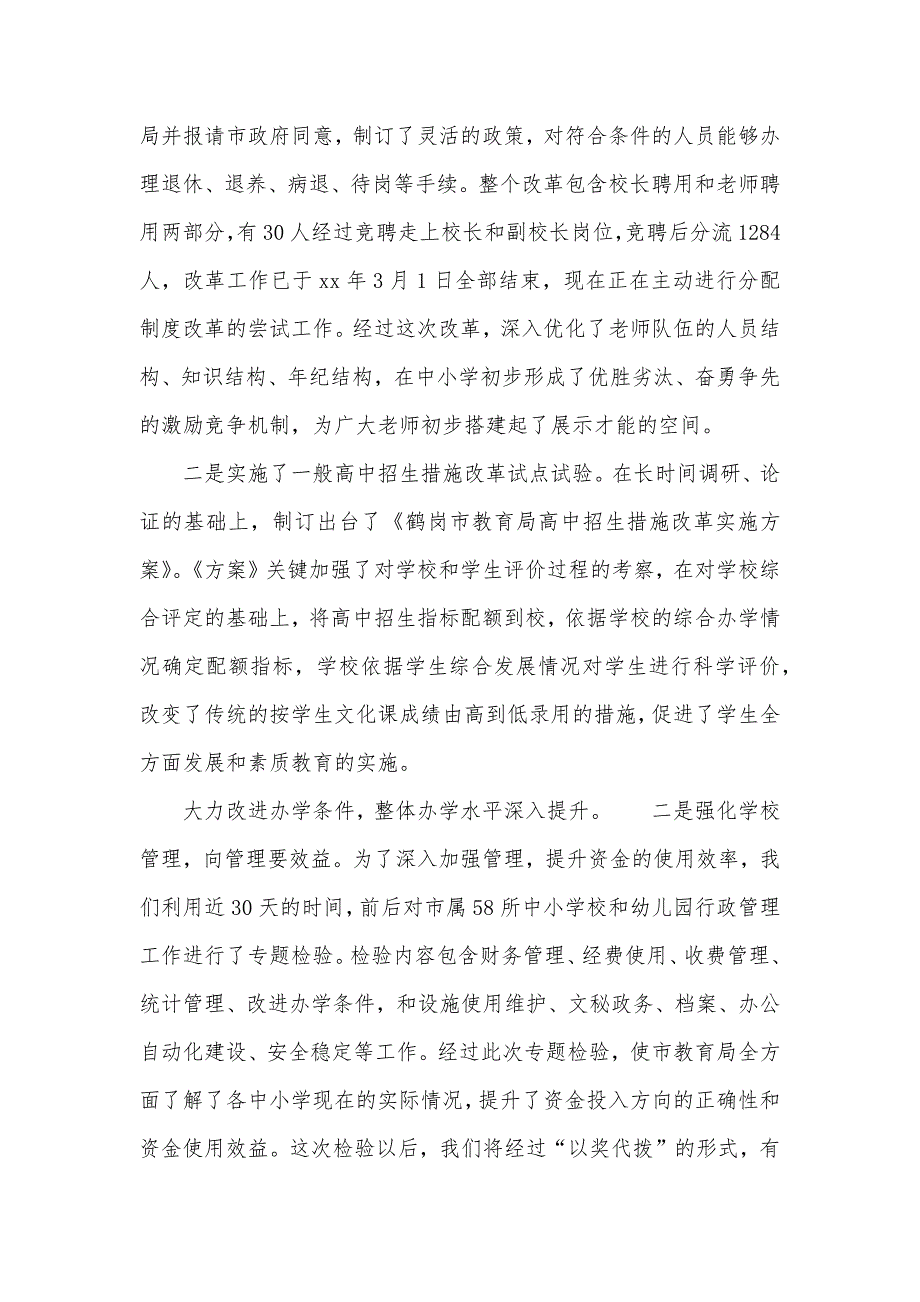 局并报请市政府同意，制订了灵活的政策，对符合条件的人员能够办
理退休、退养、病退、待岗等手续。整个改革包含校长聘用和老师聘
用两部分，有 30 人经过竞聘走上校长和副校长岗位，竞聘后分流 1284
人，改革工作已于 xx 年 3 月 1 日全部结束，现在正在主动进行分配
制度改革的尝试工作。经过这次改革，深入优化了老师队伍的人员结
构、知识结构、年纪结构，在中小学初步形成了优胜劣汰、奋勇争先
的激励竞争机制，为广大老师初步搭建起了展示才能的空间。
二是实施了一般高中招生措施改革试点试验。在长时间调研、论
证的基础上，制订出台了《鹤岗市教育局高中招生措施改革实施方
案》。《方案》关键加强了对学校和学生评价过程的考察，在对学校综
合评定的基础上，将高中招生指标配额到校，依据学校的综合办学情
况确定配额指标，学校依据学生综合发展情况对学生进行科学评价，
改变了传统的按学生文化课成绩由高到低录用的措施，促进了学生全
方面发展和素质教育的实施。
大力改进办学条件，整体办学水平深入提升。　　二是强化学校
管理，向管理要效益。为了深入加强管理，提升资金的使用效率，我
们利用近 30 天的时间，前后对市属 58 所中小学校和幼儿园行政管理
工作进行了专题检验。检验内容包含财务管理、经费使用、收费管理、
统计管理、改进办学条件，和设施使用维护、文秘政务、档案、办公
自动化建设、安全稳定等工作。经过此次专题检验，使市教育局全方
面了解了各中小学现在的实际情况，提升了资金投入方向的正确性和
资金使用效益。这次检验以后，我们将经过“以奖代拨”的形式，有